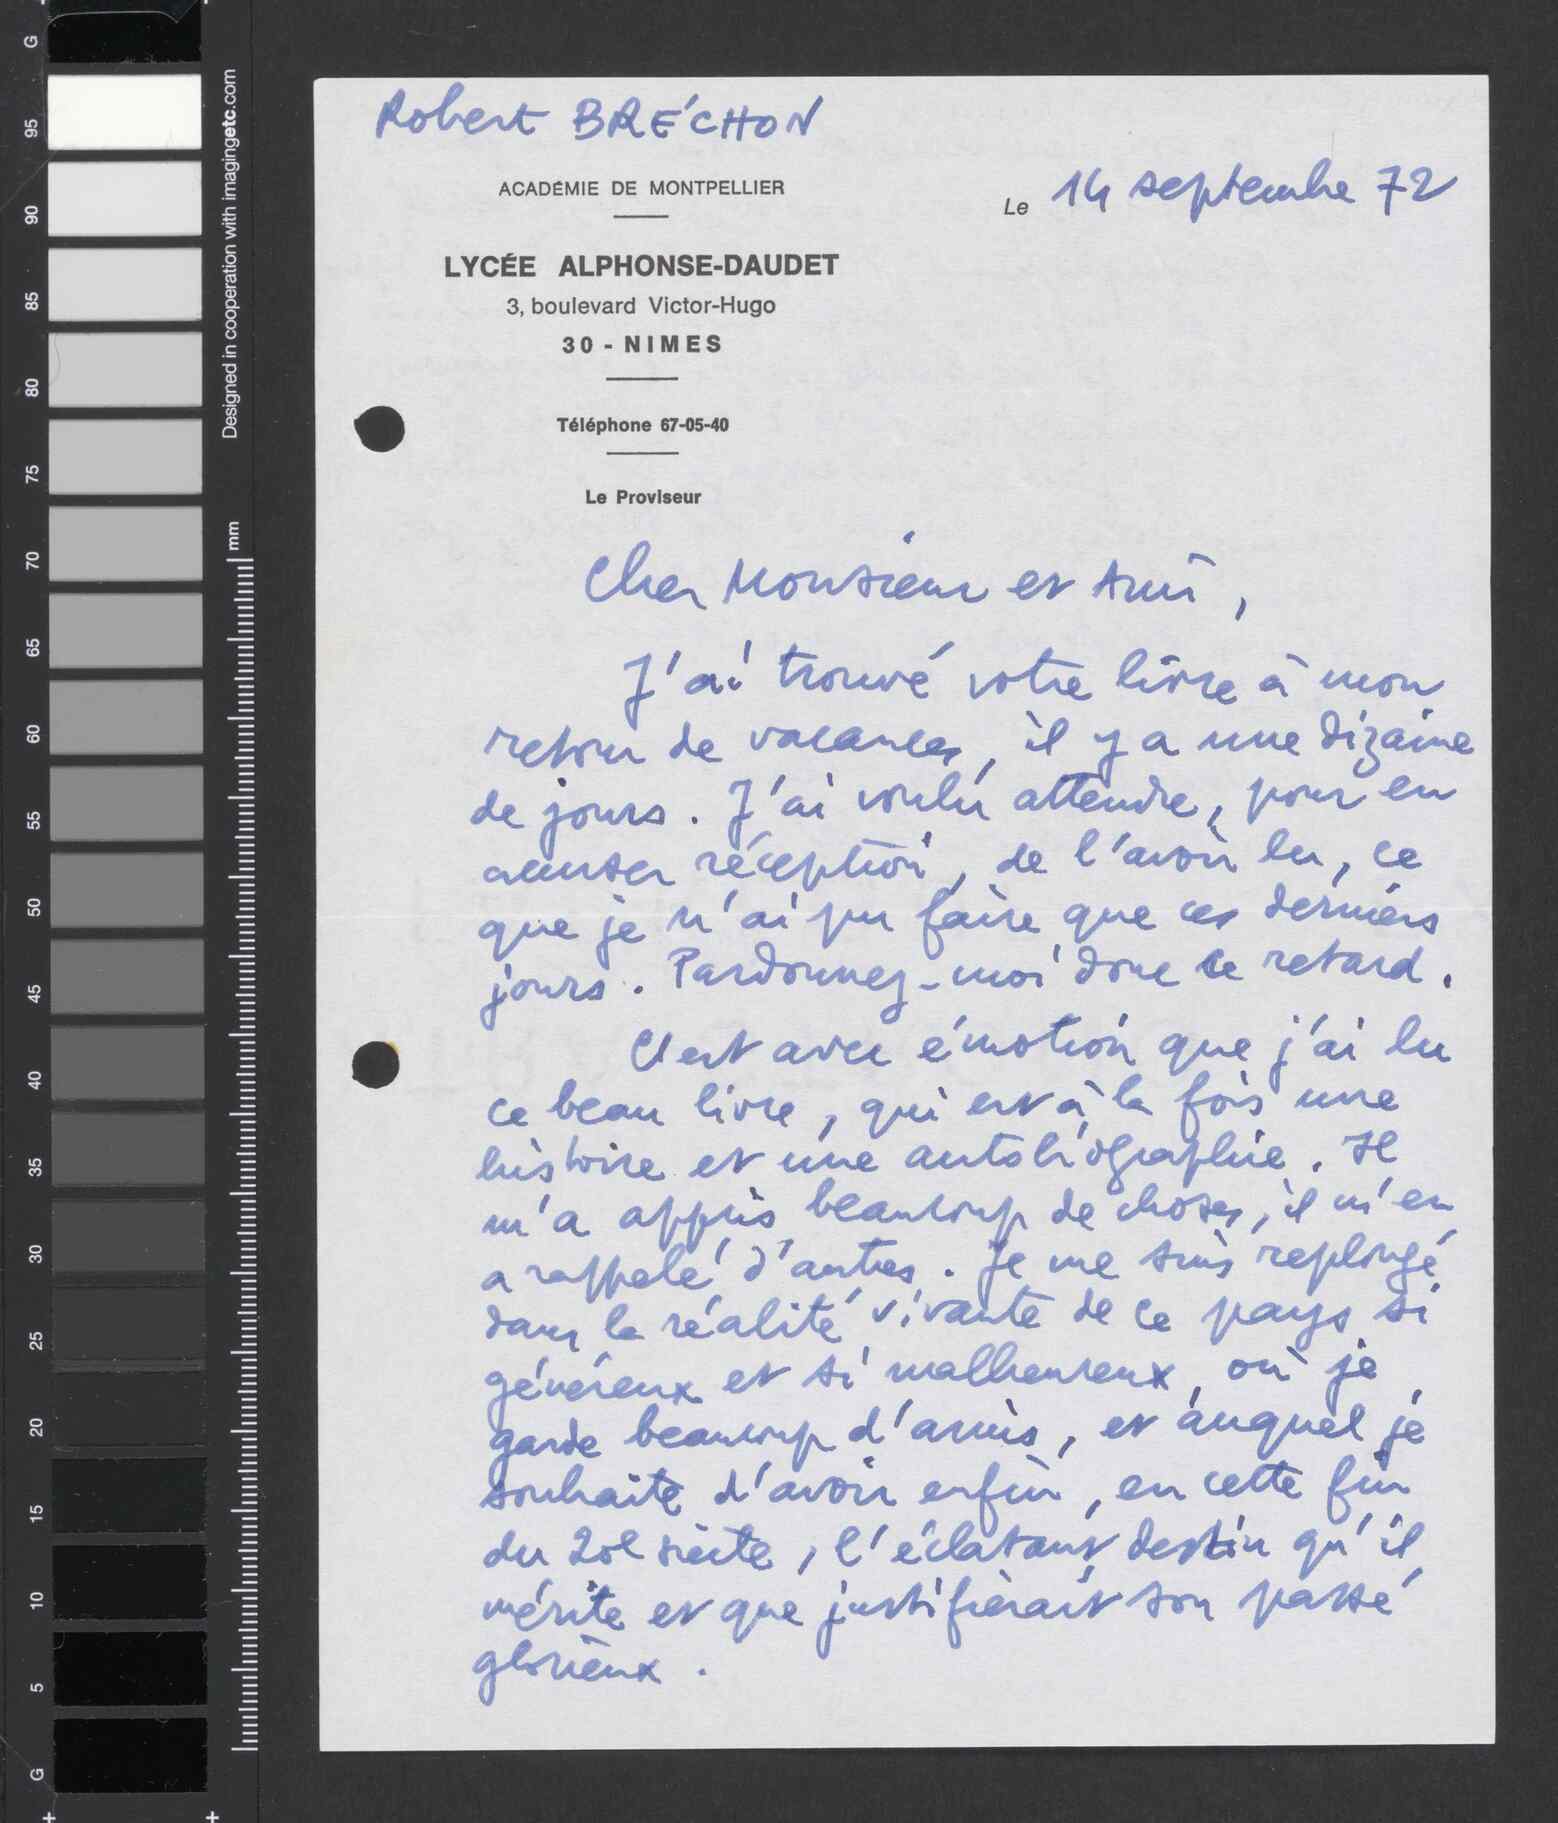 Robert BRÉCHON
ACADÉMIE DE MONTPELLIER
Le 14 septembre 72
LYCÉE ALPHONSE-DAUDET
3, boulevard Victor-Hugo
30 - NIMES
Téléphone 67-05-40
Le Proviseur
Cher Monsieur et Ami,
J'ai trouvé votre livre à mon
retour de vacances, il y a une dizaine
de jours. J'ai voulu attendre, pour en
accuser réception, de l'avoir lu, ce
que je n'ai pu faire que ces derniers
jours. Pardonnez-moi donc ce retard.
C'est avec émotion que j'ai lu
ce beau livre, qui est à la fois une
histoire et une autobiographie. Il
m'a appris beaucoup de choses, il m'en
a rappelé d'autres. Je me suis replongé
dans la réalité vivante de ce pays si
généreux et si malheureux, où je
garde beaucoup d'amis, et auquel je
souhaite d'avoir enfin, en cette fin
du 20e siècle, l'éclatant destin qu'il
mérite et que justifierait son passé
glorieux.
G
95
90
85
80
75
70
65
60
55
50
45
40
35
30
25
20
15
10
5
G
Designed in cooperation with imagingetc.com
mm